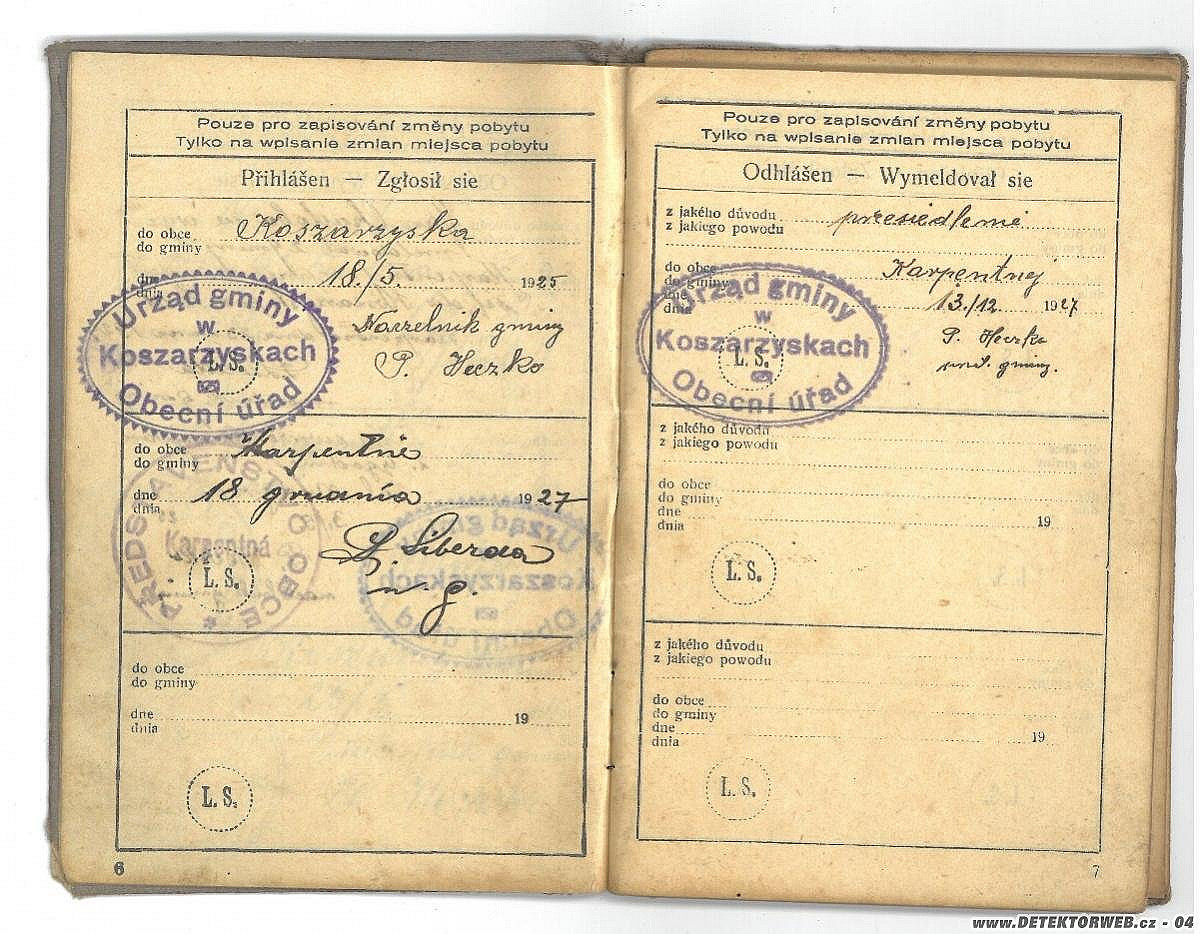 Pouze pro zapisování změny pobytu
Tylko na wpisanie zmian miejsca pobytu
Přihlášen — Zgłosił sie
do obce
do gminy
Koszarzyska
dne
dnia
18./5. 1925
Urząd gminy
w
Koszarzyskach
Obecní úřad
L. S.
Naczelnik gminy
P. Heczko
do obce
do gminy
Karpentné
dne
dnia
18 grudnia 1927
PŘEDSTAVENSTVO OBCE
Karpentná
L. S.
Liberda
do obce
do gminy
dne
dnia
19
L. S.
6
Pouze pro zapisování změny pobytu
Tylko na wpisanie zmian miejsca pobytu
Odhlášen — Wymeldował sie
z jakého důvodu
z jakiego powodu
přesiedlenie
do obce
do gminy
Karpentnej
dne
dnia
13./12. 1927
Urząd gminy
w
Koszarzyskach
Obecní úřad
L. S.
P. Heczko
gminy.
z jakého důvodu
z jakiego powodu
do obce
do gminy
dne
dnia
19
L. S.
z jakého důvodu
z jakiego powodu
do obce
do gminy
dne
dnia
19
L. S.
7
www.DETEKTORWEB.cz - 04